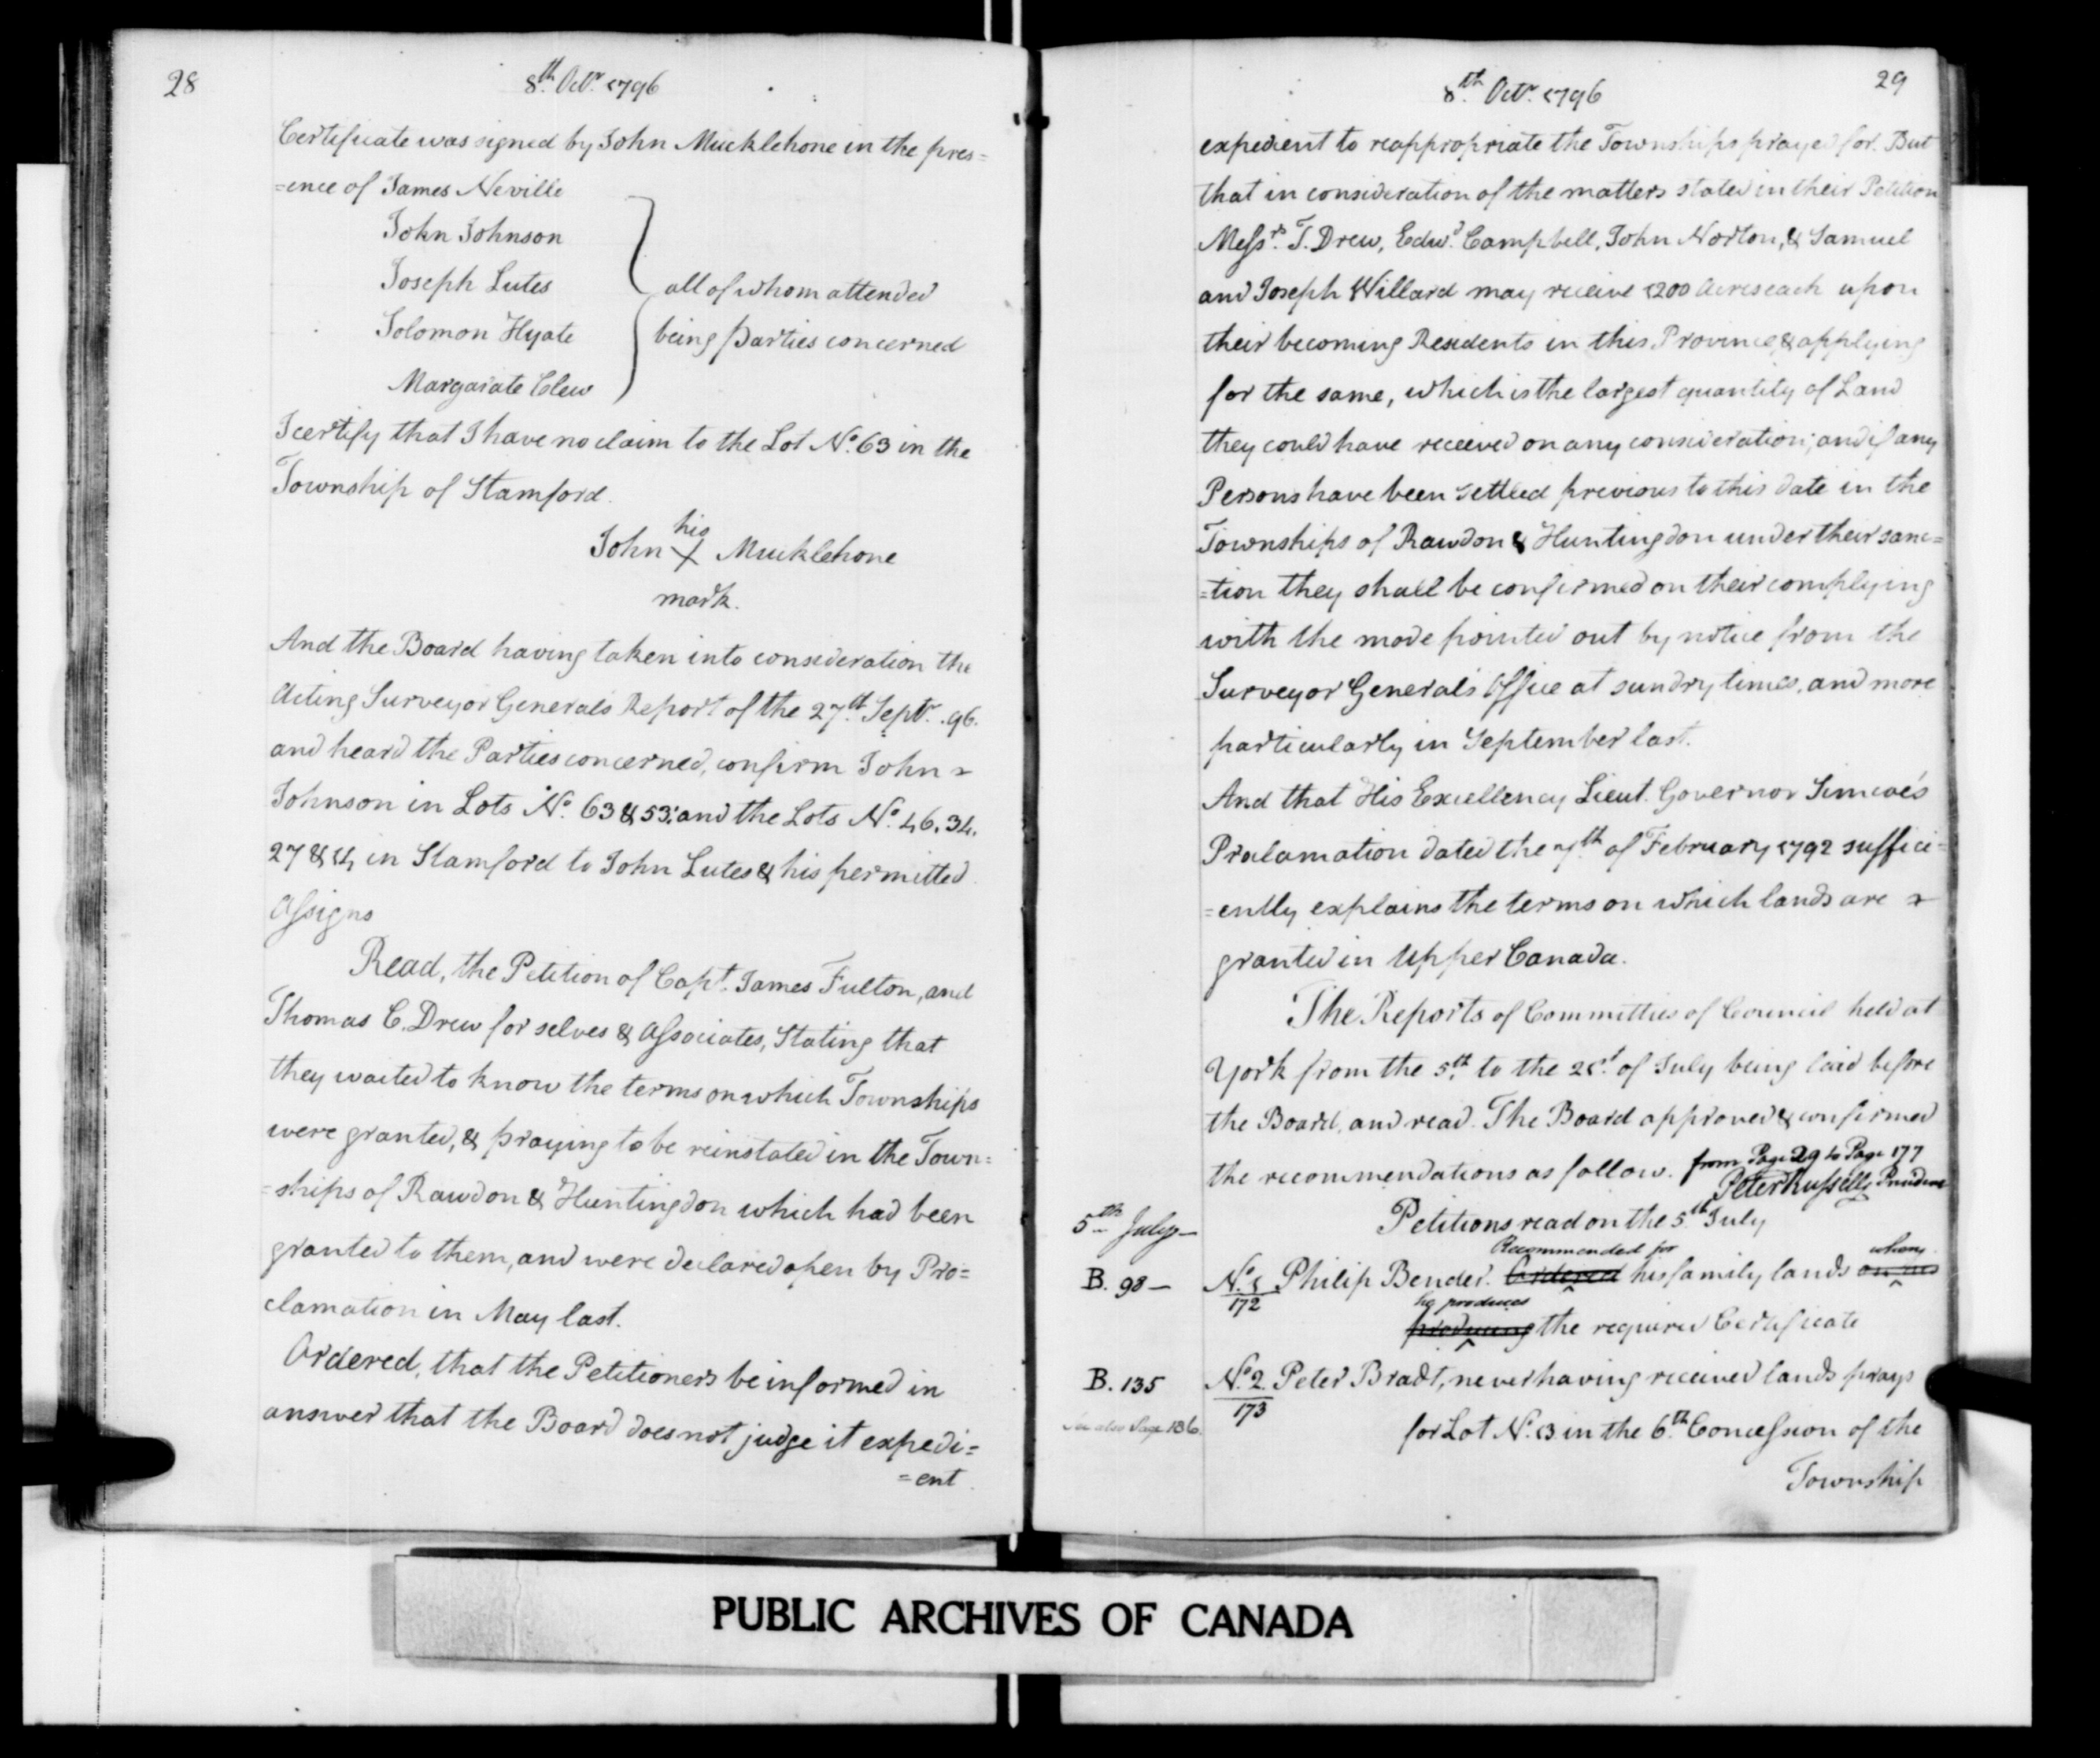 28
8th. Octr. 1796
Certificate was signed by John Mucklehone in the pres=
=ence of James Neville
John Johnson
Joseph Lutes
all of whom attended
Solomon Hyate
being parties concerned
Margarate Clew
I certify that I have no claim to the Lot No. 63 in the
Township of Stamford.
his
John X Mucklehone
mark.
And the Board having taken into consideration the
Acting Surveyor Generals Report of the 27th. Septr. 96.
and heard the Parties concerned, confirm John
Johnson in Lots No. 63 & 53; and the Lots No. 46. 34.
27 & 14 in Stamford to John Lutes & his permitted
Assigns
Read, the Petition of Capt. James Fulton, and
Thomas C. Drew for selves & Associates, Stating that
they waited to know the terms on which Townships
were granted, & praying to be reinstated in the Town=
=ships of Rawdon & Huntingdon which had been
granted to them, and were declared open by Pro=
clamation in May last.
Ordered, that the Petitioners be informed in
answer that the Board does not judge it expedi=
=ent
29
8th. Octr. 1796
expedient to reappropriate the Townships prayed for. But
that in consideration of the matters stated in their Petition
Messrs. T. Drew, Edwd. Campbell, John Norton, & Samuel
and Joseph Willard may receive 1200 Acres each upon
their becoming Residents in this Province & applying
for the same, which is the largest quantity of Land
they could have received on any consideration; and if any
Persons have been settled previous to this date in the
Townships of Rawdon & Huntingdon under their sanc=
=tion they shall be confirmed on their complying
with the mode pointed out by notice from the
Surveyor General's Office at sundry times, and more
particularly in September last.
And that His Excellency Lieut. Governor Simcoe's
Proclamation dated the 7th. of February 1792 suffici=
=ently explains the terms on which lands are
granted in Upper Canada.
The Reports of Committies of Council held at
York from the 5th. to the 21st. of July being laid before
the Board, and read. The Board approved & confirmed
the recommendations as follow. from Page 29 to Page 177
Peter Russell Presidnt
Petitions read on the 5th. July
5th July
Recommended for
whom
B. 98 — No. 1 Philip Bender. Ordered his family lands on his
172
he produces
producing the required Certificate
B. 135 No. 2 Peter Bradt, never having received lands prays
173
See also Page 136.
for Lot No. 13 in the 6th. Concession of the
Township
PUBLIC ARCHIVES OF CANADA